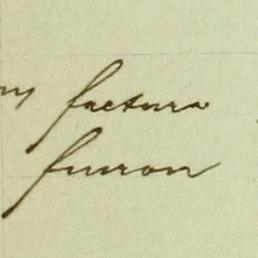 factura
fueron